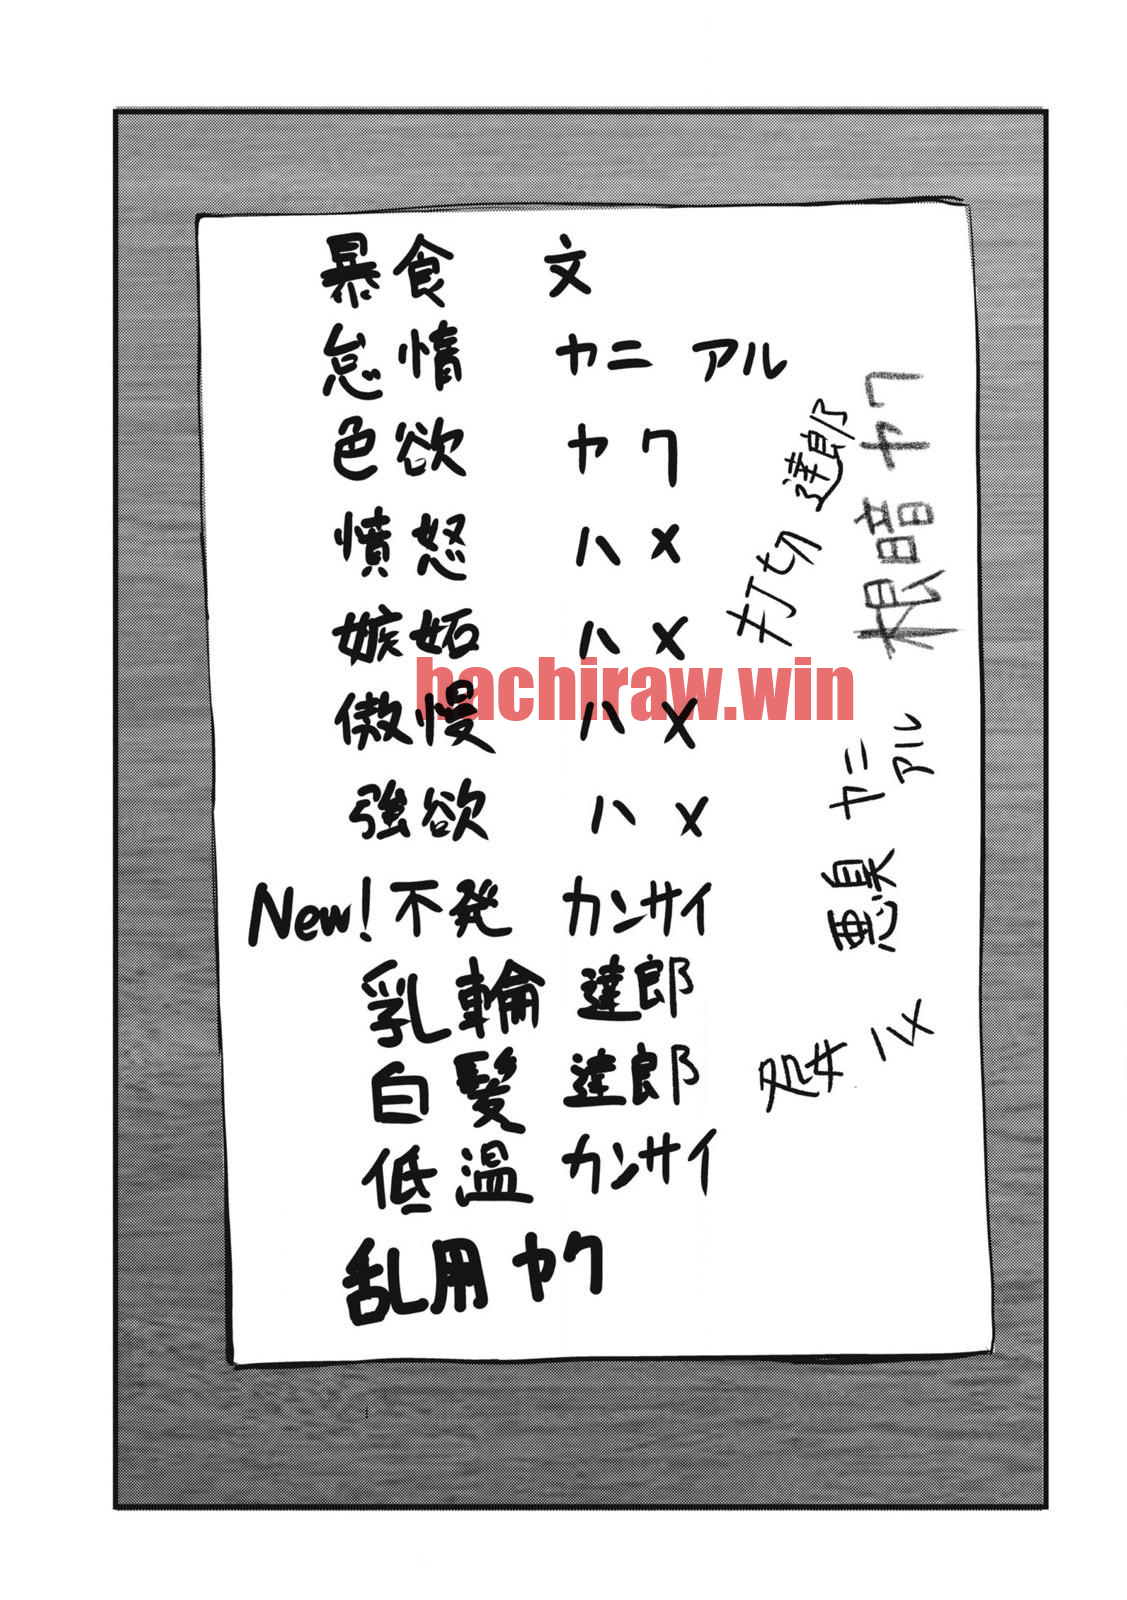 暴食 文
怠惰 ヤニ アル
色欲 ヤク
憤怒 ハメ
嫉妬 ハメ
傲慢 ハメ
強欲 ハメ
New! 不発 カンサイ
乳輪 達郎
白髪 達郎
低温 カンサイ
乱用 ヤク
打切 達郎
根暗 ヤク
悪臭 ヤニ アル
処女 ハメ
hachiraw.win